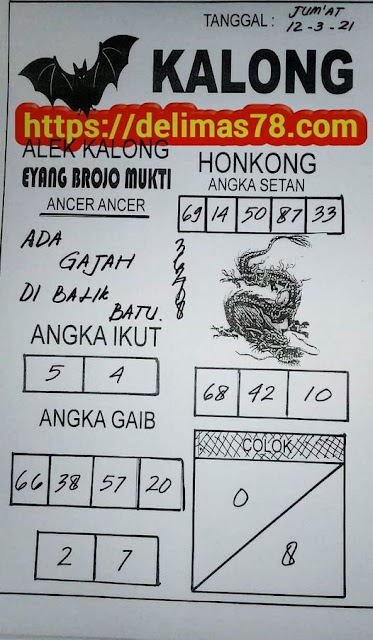 TANGGAL : JUM'AT
12-3-21
KALONG
https://delimas78.com
ALEK KALONG
EYANG BROJO MUKTI
ANCER ANCER
HONKONG
ANGKA SETAN
69 14 50 87 33
ADA
GAJAH
DI BALIK
BATU.
ANGKA IKUT
5 4
68 42 10
ANGKA GAIB
66 38 57 20
2 7
COLOK
0
8